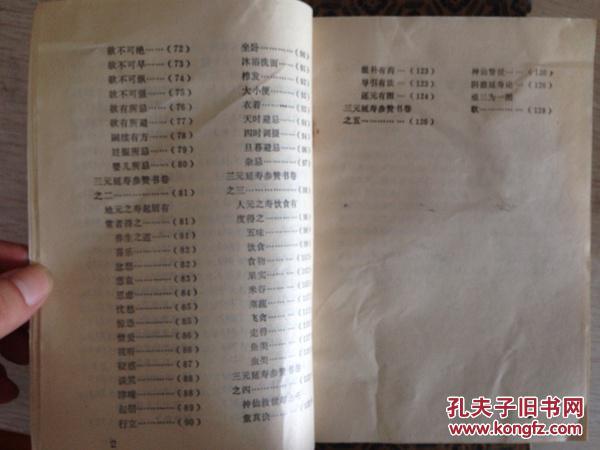 欲不可绝……(72)
欲不可早……(73)
欲不可纵……(74)
欲不可强……(75)
欲有所忌……(76)
欲有所避……(77)
嗣续有方……(78)
妊娠所忌……(79)
婴儿所忌……(80)
三元延寿参赞书卷
之二…………(81)
地元之寿起居有
常者得之…(81)
养生之道…(81)
喜乐………(82)
忿怒………(82)
悲哀………(83)
思虑………(84)
忧愁………(85)
惊恐………(85)
憎爱………(86)
视听………(86)
疑惑………(87)
谈笑………(88)
津唾………(88)
起居………(89)
行立………(90)
坐卧
沐浴洗面
栉发
大小便
衣着
天时避忌
四时调摄
旦暮避忌
杂忌
三元延寿参赞书卷
之三
人元之寿饮食有
度得之
五味
饮食
食物
果实
米谷
菜蔬
飞禽
走兽
鱼类
虫类
三元延寿参赞书卷
之四
神仙救世
童真诀
服药有药…(123)
导引有法…(123)
还元有图…(124)
三元延寿参赞书卷
之五…………(126)
神仙警世…(126)
阴德延寿论
函三为一图
歌…………(128)
孔夫子旧书网
KONGFZ.COM